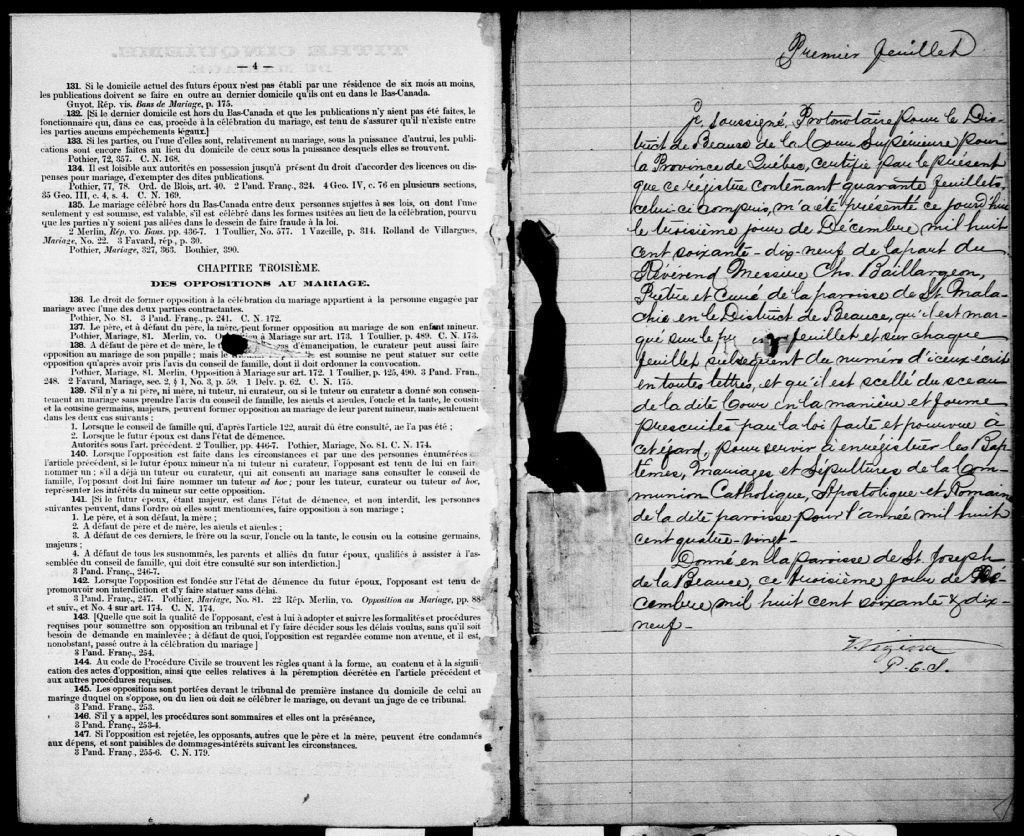 — 4 —
131. Si le domicile actuel des futurs époux n'est pas établi par une résidence de six mois au moins,
les publications doivent se faire en outre au dernier domicile qu'ils ont eu dans le Bas-Canada.
Guyot, Rép. vis. Bans de Mariage, p. 175.
132. [Si le dernier domicile est hors du Bas-Canada et que les publications n'y aient pas été faites, le
fonctionnaire qui, dans ce cas, procède à la célébration du mariage, est tenu de s'assurer qu'il n'existe entre
les parties aucuns empêchements légaux.]
133. Si les parties, ou l'une d'elles sont, relativement au mariage, sous la puissance d'autrui, les publi-
cations sont encore faites au lieu du domicile de ceux sous la puissance desquels elles se trouvent.
Pothier, 72, 357. C. N. 168.
134. Il est loisible aux autorités en possession jusqu'à présent du droit d'accorder des licences ou dis-
penses pour mariage, d'exempter des dites publications.
Pothier, 77, 78. Ord. de Blois, art. 40. 2 Pand. Franç., 324. 4 Geo. IV, c. 76 en plusieurs sections,
35 Geo. III, c. 4, s. 4. C. N. 169.
135. Le mariage célébré hors du Bas-Canada entre deux personnes sujettes à ses lois, ou dont l'une
seulement y est soumise, est valable, s'il est célébré dans les formes usitées au lieu de la célébration, pourvu
que les parties n'y soient pas allées dans le dessein de faire fraude à la loi.
2 Merlin, Rép. vo. Bans, pp. 436-7. 1 Toullier, No. 577. 1 Vazeille, p. 314. Rolland de Villargues,
Mariage, No. 22. 3 Favard, rép., p. 30.
Pothier, Mariage, 327, 363. Bouhier, 390.
CHAPITRE TROISIÈME.
DES OPPOSITIONS AU MARIAGE.
136. Le droit de former opposition à la célébration du mariage appartient à la personne engagée par
mariage avec l'une des deux parties contractantes.
Pothier, No. 81. 3 Pand. Franç., p. 241. C. N. 172.
137. Le père, et à défaut du père, la mère, peut former opposition au mariage de son enfant mineur.
Pothier, Mariage, 81. Merlin, vo. à Mariage sur art. 173. 1 Toullier, p. 489. C. N. 173.
138. A défaut de père et de mère, le d'émancipation, le curateur peut aussi faire
opposition au mariage de son pupille ; mais le est soumise ne peut statuer sur cette
opposition qu'après avoir pris l'avis du conseil de famille, dont il doit ordonner la convocation.
Pothier, Mariage, 81. Merlin, Opposition à Mariage sur art. 172. 1 Toullier, p. 125, 490. 3 Pand. Fran.,
248. 2 Favard, Mariage, sec. 2, § 1, No. 3, p. 59. 1 Delv. p. 62. C. N. 175.
139. S'il n'y a ni père, ni mère, ni tuteur, ni curateur, ou si le tuteur ou curateur a donné son consen-
tement au mariage sans prendre l'avis du conseil de famille, les aïeuls et aïeules, l'oncle et la tante, le cousin
et la cousine germains, majeurs, peuvent former opposition au mariage de leur parent mineur, mais seulement
dans les deux cas suivants :
1. Lorsque le conseil de famille qui, d'après l'article 122, aurait dû être consulté, ne l'a pas été ;
2. Lorsque le futur époux est dans l'état de démence.
Autorités sous l'art. précédent. 2 Toullier, pp. 446-7. Pothier, Mariage, No. 81. C. N. 174.
140. Lorsque l'opposition est faite dans les circonstances et par une des personnes énumérées
l'article précédent, si le futur époux mineur n'a ni tuteur ni curateur, l'opposant est tenu de lui en faire
nommer un ; s'il a déjà un tuteur ou curateur, qui ait consenti au mariage sans consulter le conseil de
famille, l'opposant doit lui faire nommer un tuteur ad hoc ; pour les tuteur, curateur ou tuteur ad hoc,
représenter les intérêts du mineur sur cette opposition.
141. [Si le futur époux, étant majeur, est dans l'état de démence, et non interdit, les personnes
suivantes peuvent, dans l'ordre où elles sont mentionnées, faire opposition à son mariage ;
1. Le père, et à son défaut, la mère ;
2. A défaut de père et de mère, les aïeuls et aïeules ;
3. A défaut de ces derniers, le frère ou la sœur, l'oncle ou la tante, le cousin ou la cousine germains,
majeurs ;
4. A défaut de tous les susnommés, les parents et alliés du futur époux, qualifiés à assister à l'as-
semblée du conseil de famille, qui doit être consulté sur son interdiction.]
3 Pand. Franç., 246-7.
142. Lorsque l'opposition est fondée sur l'état de démence du futur époux, l'opposant est tenu de
promouvoir son interdiction et d'y faire statuer sans délai.
3 Pand. Franç., 247. Pothier, Mariage, No. 81. 22 Rép. Merlin, vo. Opposition au Mariage, pp. 88
et suiv., et No. 4 sur art. 174. C. N. 174.
143. [Quelle que soit la qualité de l'opposant, c'est à lui à adopter et suivre les formalités et procédures
requises pour soumettre son opposition au tribunal et l'y faire décider sous les délais voulus, sans qu'il soit
besoin de demande en mainlevée ; à défaut de quoi, l'opposition est regardée comme non avenue, et il est,
nonobstant, passé outre à la célébration du mariage]
3 Pand. Franç., 254.
144. Au code de Procédure Civile se trouvent les règles quant à la forme, au contenu et à la signifi-
cation des actes d'opposition, ainsi que celles relatives à la péremption décrétée en l'article précédent et
aux autres procédures requises.
145. Les oppositions sont portées devant le tribunal de première instance du domicile de celui au
mariage duquel on s'oppose, ou du lieu où doit se célébrer le mariage, ou devant un juge de ce tribunal.
3 Pand. Franç., 253.
146. S'il y a appel, les procédures sont sommaires et elles ont la préséance,
3 Pand. Franç., 253-4.
147. Si l'opposition est rejetée, les opposants, autres que le père et la mère, peuvent être condamnés
aux dépens, et sont paisibles de dommages-intérêts suivant les circonstances.
3 Pand. Franç., 255-6. C. N. 179.
Premier feuillet
Je, soussigné, Protonotaire pour le Dis-
trict de Beauce de la Cour Supérieure pour
la Province de Québec, certifie par le présent
que ce régistre contenant quarante feuillets,
celui ci compris, m'a été présenté ce jourd'hui
le troisième jour de Décembre mil huit
cent soixante-dix-neuf de la part du
Révérend Messire Chs. Baillargeon,
Prêtre et Curé de la paroisse de St. Mala-
chie en le District de Beauce, qu'il est mar-
qué sur le feuillet et sur chaque
feuillet subséquent du numéro d'iceux écrit
en toutes lettres, et qu'il est scellé du sceau
de la dite Cour en la manière et forme
prescrites par la loi faite et pourvue à
cet égard, pour servir à enregistrer les Bap-
têmes, Mariages et Sépultures de la Com-
munion Catholique, Apostolique et Romaine
de la dite paroisse pour l'année mil huit
cent quatre-vingt-
Donné en la paroisse de St. Joseph
de la Beauce, ce troisième jour de Dé-
cembre mil huit cent soixante & dix-
neuf-
P. C. S.